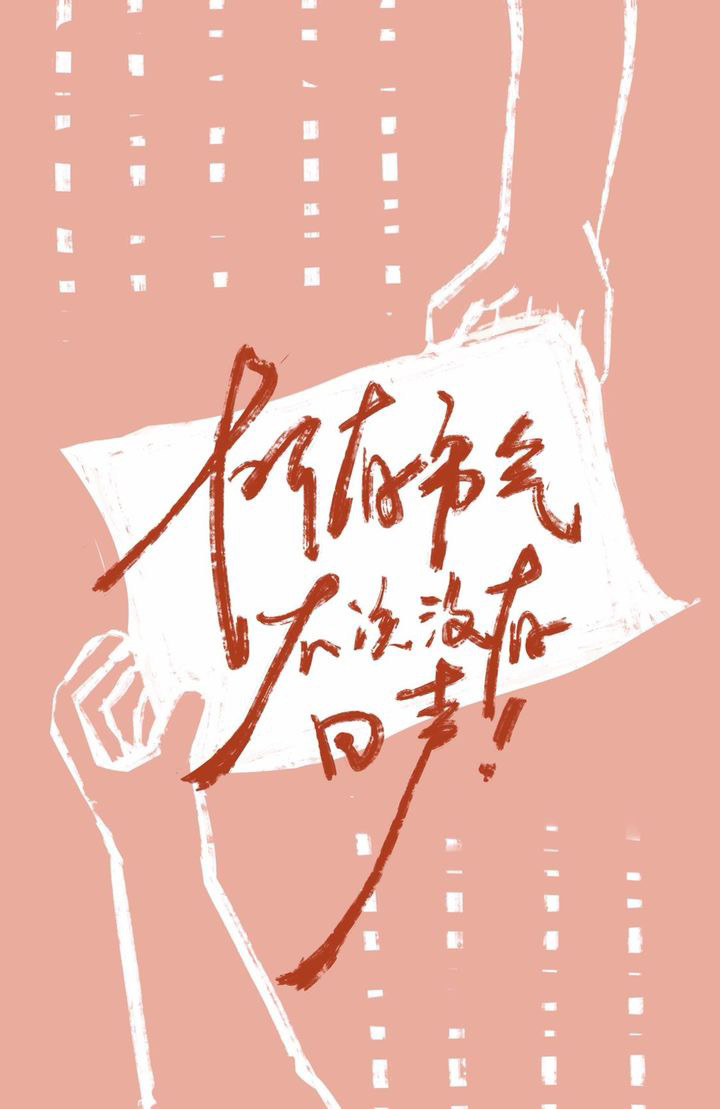 所有勇气
没有
回声!